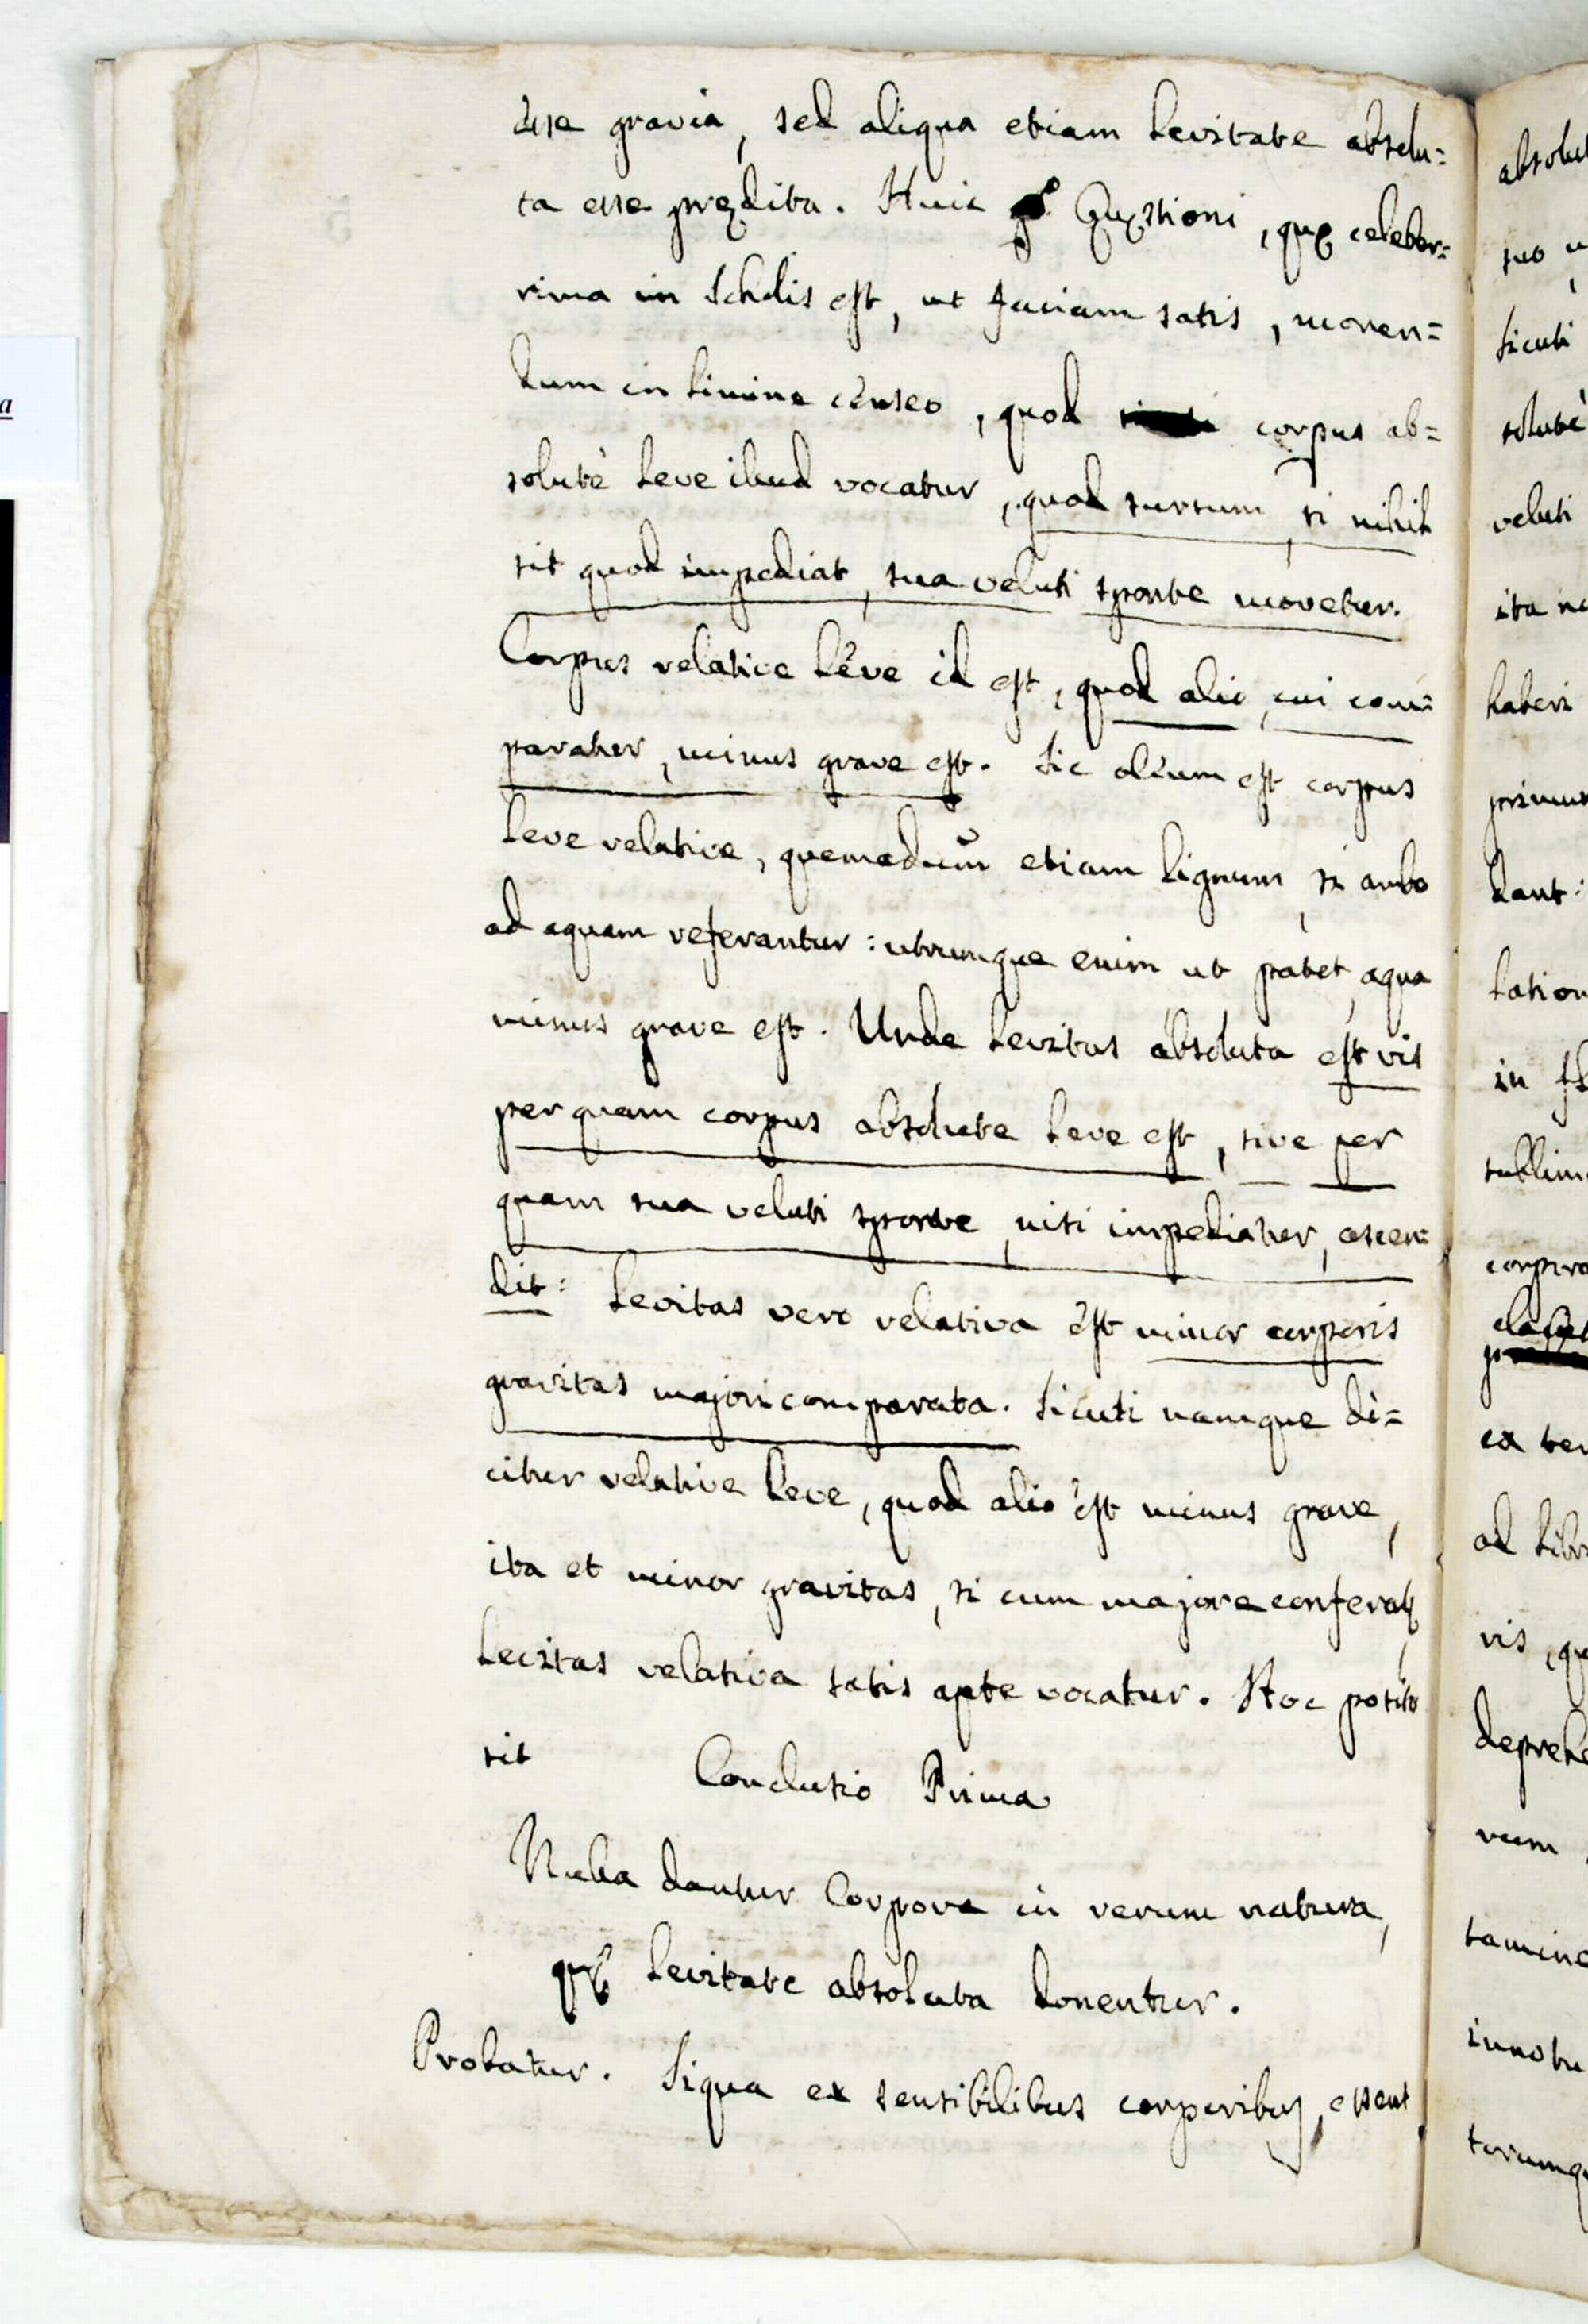 esse gravia, sed aliqua etiam levitate absolu=
ta esse prędita. Huic Quęstioni, quę celeber=
rima in Scholis est, ut faciam satis, monen=
dum in limine censeo, quod corpus ab=
solutè leve illud vocatur, quod sursum, si nihil
sit quod impediat, sua veluti sponte movetur.
Corpus relative lève id est, quod alio, cui com=
paratur, minus grave est. Sic oleum est corpus
leve relative, quemadmũ etiam lignum, si ambo
ad aquam referantur: utrumque enim ut patet, aqua
minus grave est. Unde levitas absoluta est vis
per quam corpus absolute leve est, sive per
quam sua veluti sponte, nisi impediatur, ascen=
dit: Levitas vero relativa est minor corporis
gravitas majori comparata. Sicuti namque di=
citur relative leve, quod alio est minus grave,
ita et minor gravitas, si cum majore conferatꝫ
levitas relativa satis apte vocatur. Hoc posito
sit Conclusio Prima
Nulla dantur Corpora in rerum natura,
quę levitate absoluta donentur.
Probatur. Siqua ex sensibilibus corporibꝫ, essent
a
absolut
suo
sicuti
solutè
veluti
ita
haberi
primu
dant:
lation
in
sublim
corpora
ex
ad libr
vis, qu
deprehe
rum
tamine
innotu
torumq